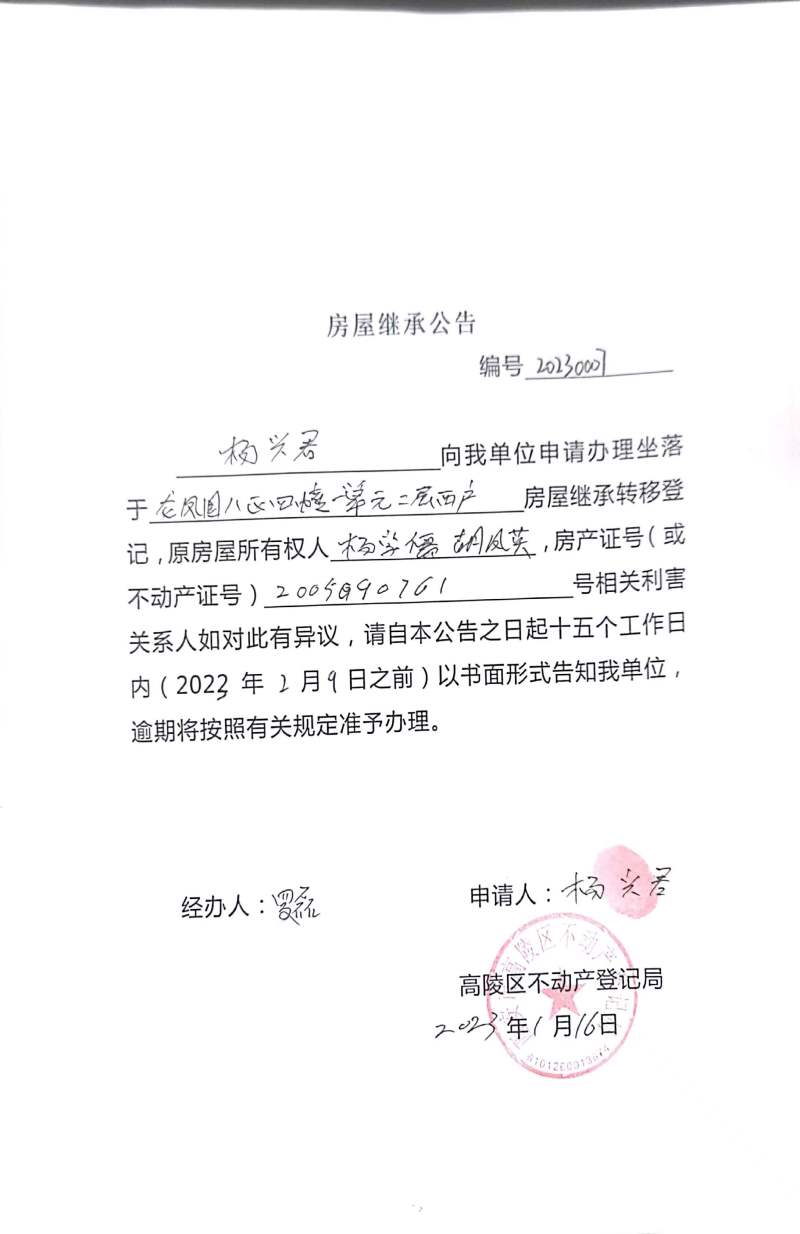 房屋继承公告
编号 20230007
杨兴君 向我单位申请办理坐落
于 龙凤园八区四幢一单元二层西户 房屋继承转移登
记，原房屋所有权人 杨学儒 胡凤英，房产证号（或
不动产证号） 2005090761 号相关利害
关系人如对此有异议，请自本公告之日起十五个工作日
内（2023年2月9日之前）以书面形式告知我单位，
逾期将按照有关规定准予办理。
经办人：罗磊 申请人：杨兴君
高陵区不动产登记局
2023年1月16日